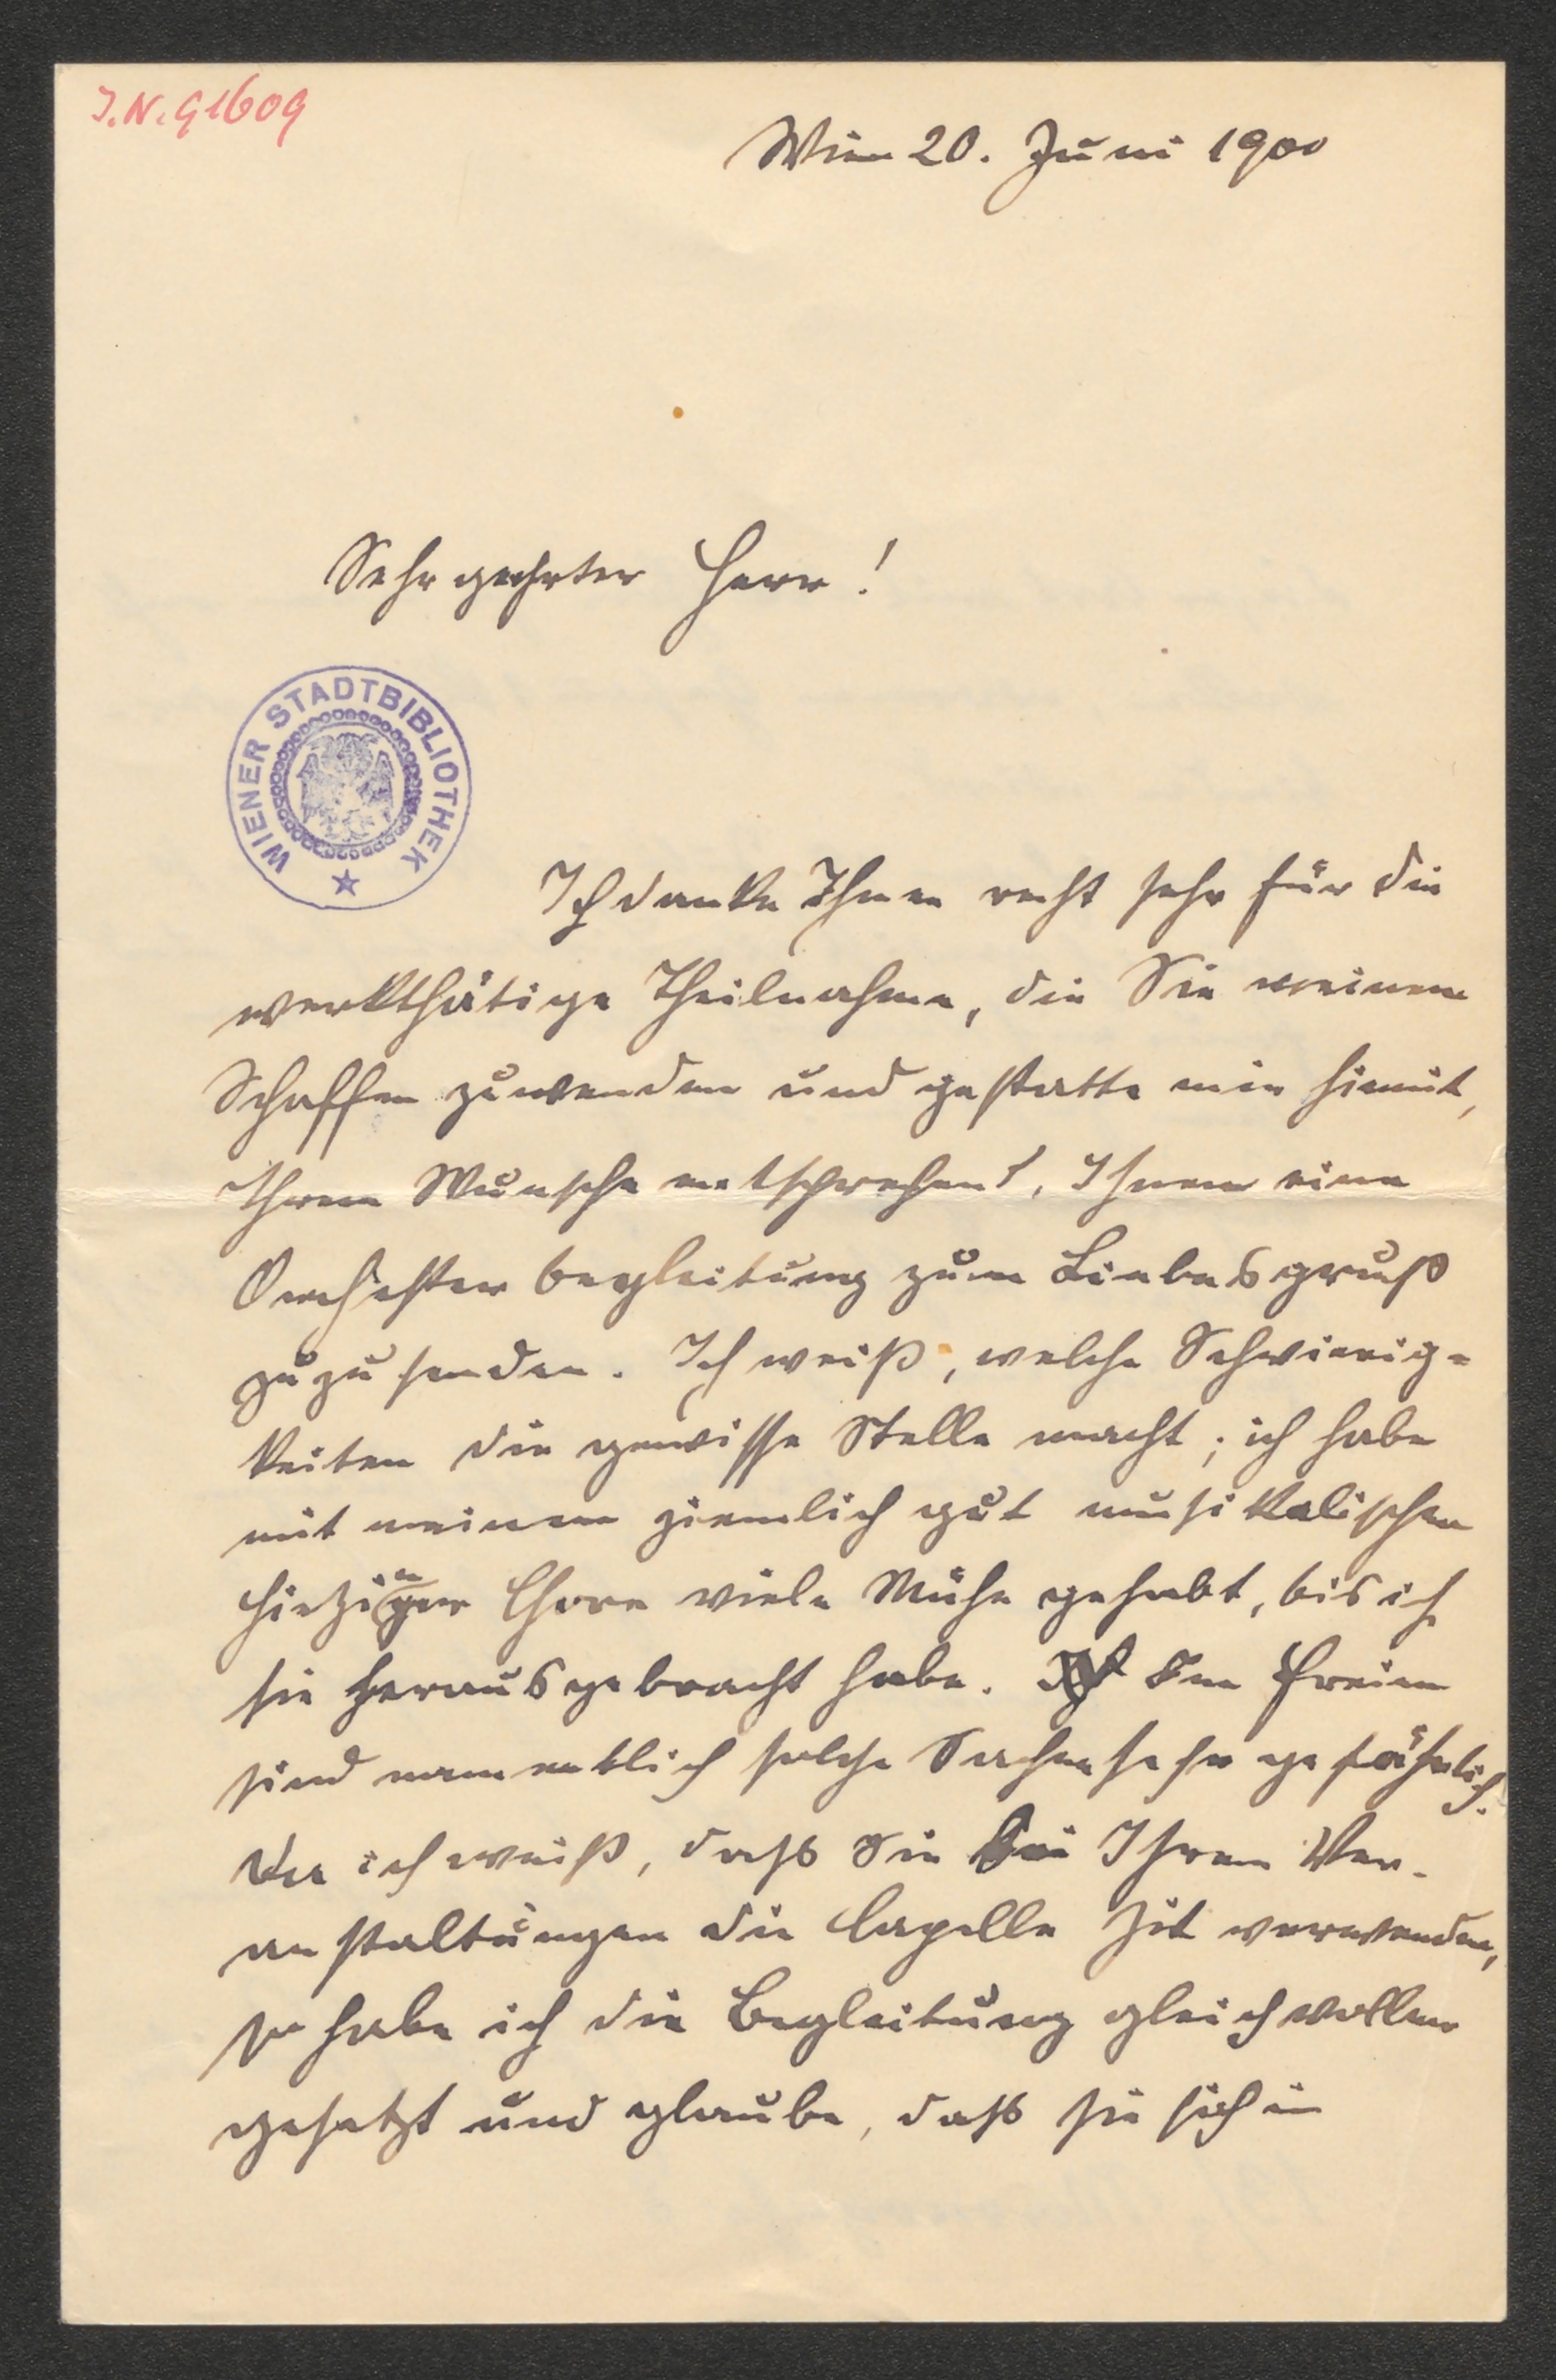 J.N. 91609
Wien 20. Juni 1900
Sehr geehrter Herr!
WIENER STADTBIBLIOTHEK
Ich danke Ihnen recht sehr für die
werkthätige Theilnahme, die Sie meinem
Schaffen zuwenden und gestatte mir hiemit,
Ihrem Wunsche entsprechend, Ihnen eine
Orchester begleitung zum Liebesgruß
zuzusenden. Ich weiß, welche Schwierig-
keiten die gewisse Stelle macht; ich habe
mit meinem ziemlich gut musikalischen
Hietzinger Chore viele Mühe gehabt, bis ich
sie herausgebracht habe. Im Freien
sind namentlich solche Sachen sehr gefährlich.
Da ich weiß, dass Sie bei Ihren Ver-
anstaltungen die Capelle verwenden,
so habe ich die Begleitung gleich voller
gesetzt und glaube, dass sie sich in